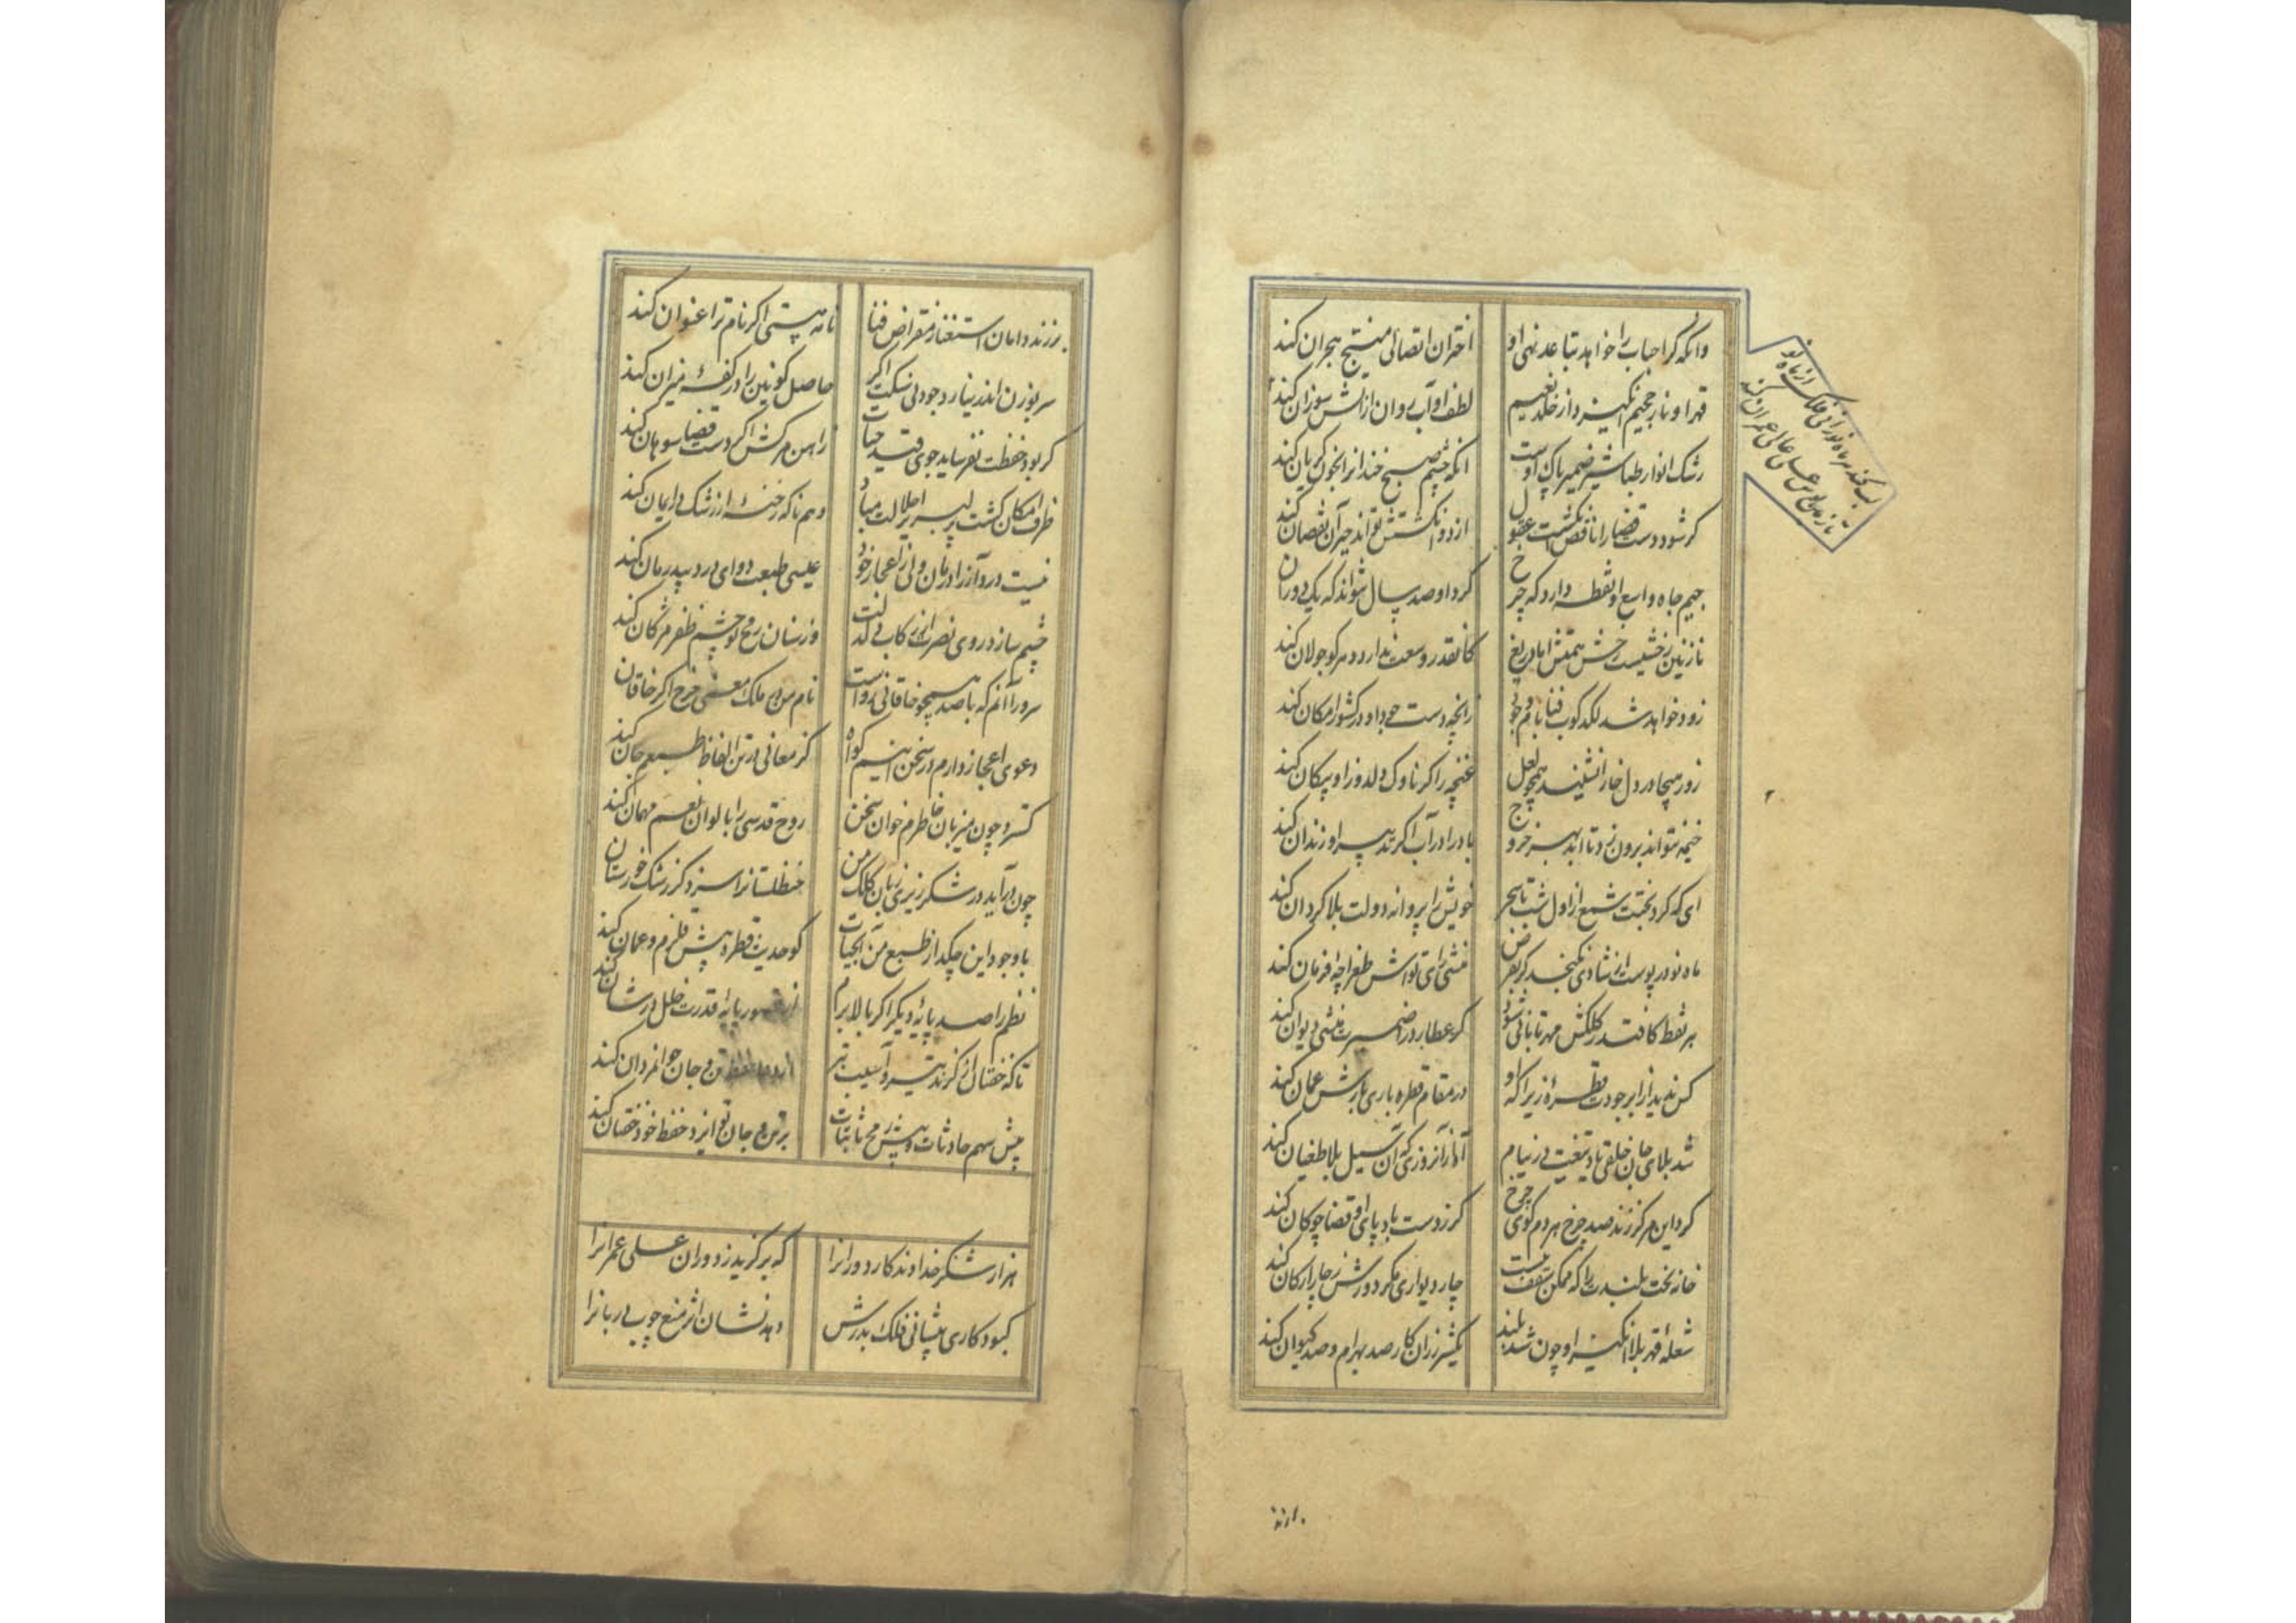 وانکه گر احباب را خواهد تباعد نهی او
اختران اتصالی منتج هجران کند
قهر او نار جحیم انگیزد از خلد نعیم
لطف او آب روان از آتش سوزان کند
رشک انوار طباشیر ضمیر پاک اوست
آنکه چشم صبح خندانرا بخون گریان کند
گر شود دست قضا را ناقص انگشت عقول
از دو انگشتش تواند جبر آن نقصان کند
جیم جاه واسع او نقطه دارد که چرخ
گرد او صد سال نتواند که یک دوران کند
نازنین رخشیست رخش همتش اما دریغ
کانقدر وسعت ندارد دهر کو جولان کند
زود خواهد شد لگدکوب فنا بام وجود
زانچه دست جود او در کشور امکان کند
زور پیجا در دل خارا نشیند همچو لعل
غنچه را گر ناوک دلدوز او پیکان کند
خیمه نتواند برون زد تا ابد بهر خروج
باد را در آب اگر تدبیر او زندان کند
ای که گرد بختت شمع از اول شب تا سحر
خویش را پروانه دولت بلاگردان کند
ماه نو در پوست از شادی نگنجد گر بفرض
منشی رای تواش طغراچه فرمان کند
هر نقط کافتد ز کلکش مهر تابانی شود
گر عطارد را ضمیرت منشی دیوان کند
کس ندید از ابر جودت قطره زیرا که او
در مقام قطره باری بارش عمان کند
شد بلای جان خلقی تا تیغت در نیام
آه از آنروزی که آن سیل بلا طغیان کند
گرد این مرکز زند صد چرخ هر دم گوی چرخ
گر ز دست بادپای او قضا چوگان کند
خانه بخت بلندت را که ممکن سقف نیست
چار دیواری مگر دورش ز چار ارکان کند
شعله قهر بلاانگیز او چون شد بلند
یکشرر زان کار صد بهرام و صد کیوان کند
تو
عمران کند
برزند
برزند دامان استغنا ز مقراض فنا
نامه هستی اگر نام ترا عنوان کند
سر بوزن اندر نیارد جودی سنگت اگر
حاصل کونین را در کفه میزان کند
گر بود حفظت نفرساید جوی قید حیات
زاهن مرگش اگر دست قضا سوهان کند
ظرف امکان گشت پر لبریز اجلالت مباد
وهم ناگه رخنه از رشک در ایمان کند
نیست درد آز را درمان ولی از اعجاز خود
عیسی طبعت دوای درد بیدرمان کند
چشم سازد روی نصرت را رکاب دلدلت
وز سنان رمح تو چشم ظفر مژگان کند
سرورا آنم که با صد همچو خاقانی رواست
نام من در ملک معنی چرخ اگر خاقان کند
دعوی اعجاز دارم در سخن اینم گواه
کز معانی در تن الفاظ طبعم جان کند
گسترد چون میزبان خاطرم خوان سخن
روح قدسی را بالوان نعم مهمان کند
چون درآید در شکرریزی زبان کلک من
حنظلستانرا سزد کز رشک خوزستان کند
با وجود این چکد از طبع من آبحیات
کو حدیث قطره پیش قلزم و عمان کند
نظم را صد پایه دیگر اگر بالا برم
پایه قدرت خلل در شان کند
تا که خفتان از گزند تیر و آسیب تبر
تن و جان جوانمردان کند
پیش سهم حادثات و پیش رمح نائبات
بر تن و جان تو ایزد حفظ خود خفتان کند
هزار شکر خداوندگار دورانرا
که برگزید ز دوران علی عمرانرا
کبود کاری پیشانی فلک بدرش
دهد نشان اثر منع چوب دربانرا